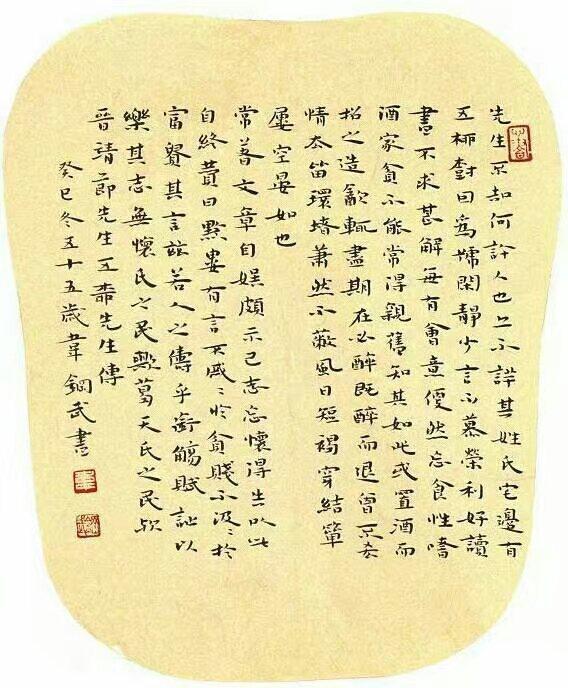 先生不知何許人也亦不詳其姓氏宅邊有
五柳樹因爲號閑靜少言不慕榮利好讀
書不求甚解每有會意便然忘食性嗜
酒家貧不能常得親舊知其如此或置酒而
招之造飲輒盡期在必醉既醉而退曾不吝
情去留環堵蕭然不蔽風日短褐穿結簞
屢空晏如也
常著文章自娛頗示己志忘懷得失以此
自終贊曰黔婁有言不戚〻於貧賤不汲〻於
富貴其言茲若人之儔乎銜觴賦詩以
樂其志無懷氏之民歟葛天氏之民歟
晉靖節先生五柳先生傳
癸巳冬五十五歲韋鋼武書